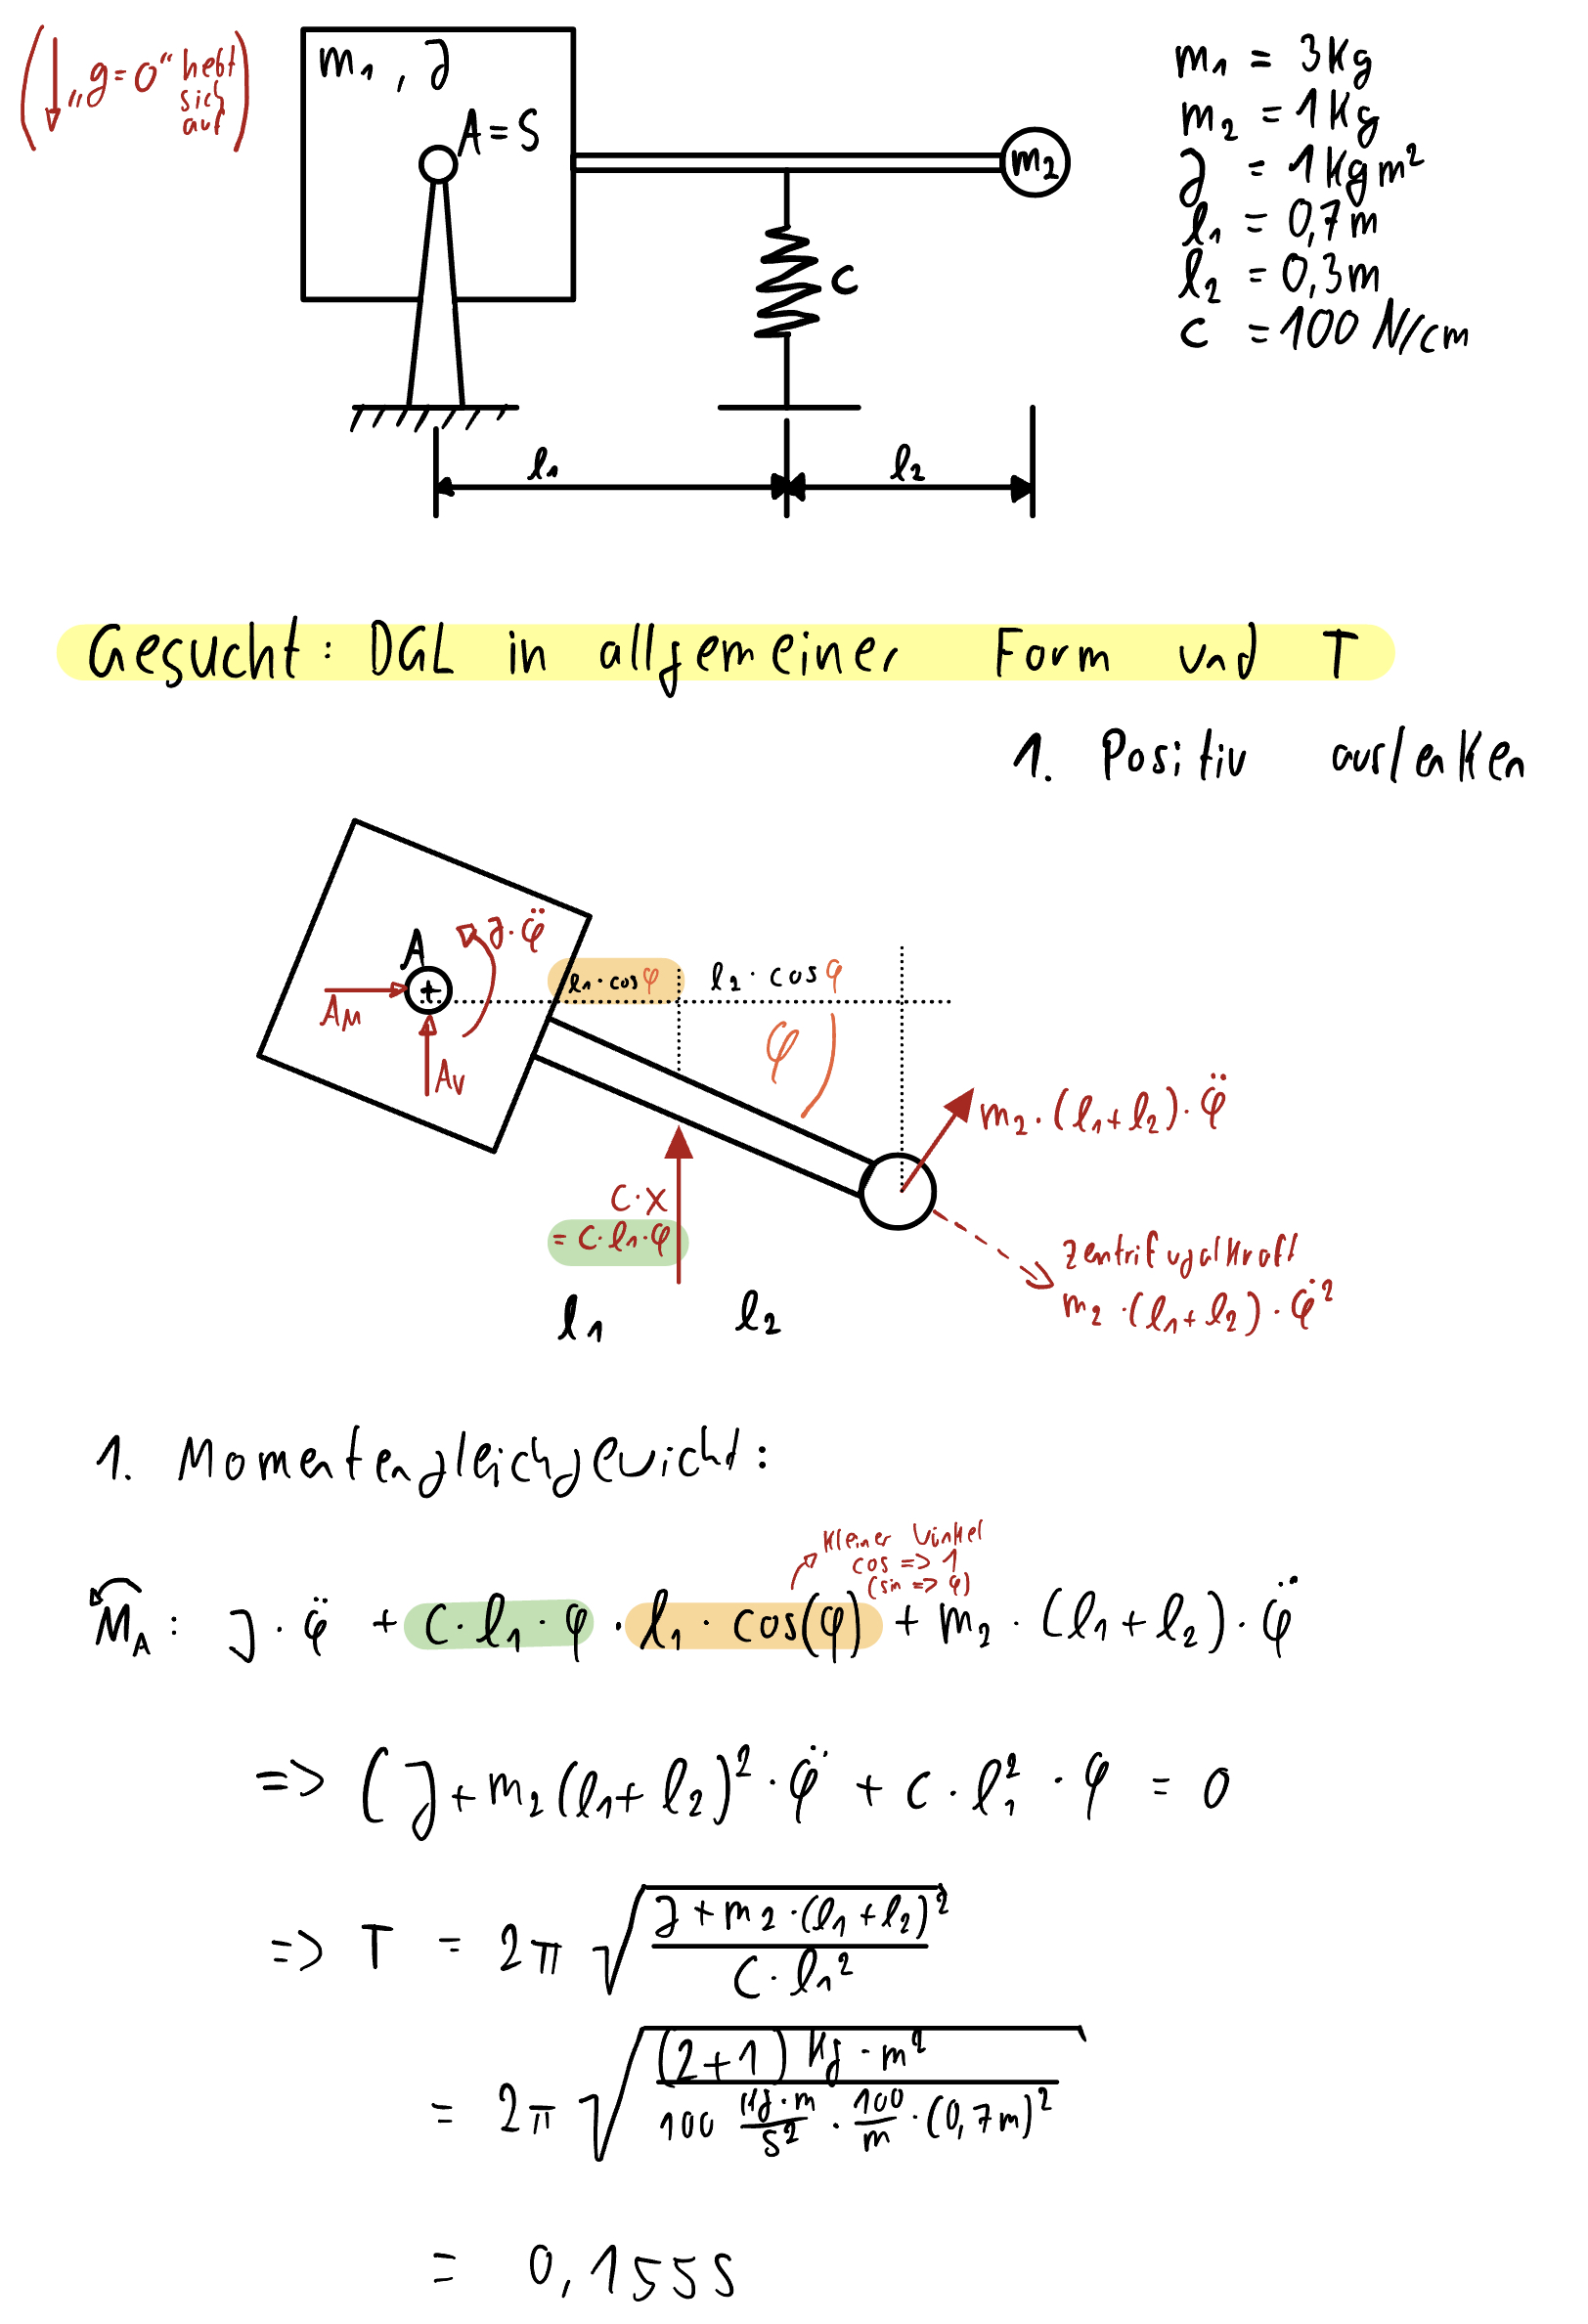 „g=0“ hebt
sich
auf
m₁, J
A=S
m₂
c
l₁
l₂
m₁ = 3Kg
m₂ = 1Kg
J = 1Kgm²
l₁ = 0,7m
l₂ = 0,3m
c = 100 N/cm
Gesucht: DGL in allgemeiner Form und T
1. Positiv auslenken
A
J·φ̈
A_H
A_V
l₁·cosφ
l₂·cosφ
φ
m₂·(l₁+l₂)·φ̈
c·x
= c·l₁·φ
Zentrifugalkraft
m₂·(l₁+l₂)·φ̇²
l₁ l₂
1. Momentengleichgewicht:
Kleiner Winkel
cos => 1
(sin => φ)
M_A: J·φ̈ + c·l₁·φ·l₁·cos(φ) + m₂·(l₁+l₂)·φ̈
=> (J+m₂(l₁+l₂)²·φ̈ + c·l₁²·φ = 0
=> T = 2π √((J+m₂·(l₁+l₂)²)/(c·l₁²))
= 2π √(((2+1) Kg·m²)/(100 (Kg·m)/s² · 100/m · (0,7m)²))
= 0,155s